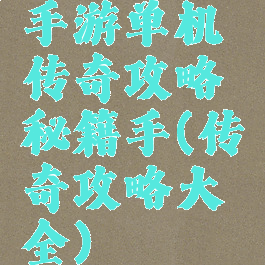 手游单机
传奇攻略
秘籍手(传
奇攻略大
全)